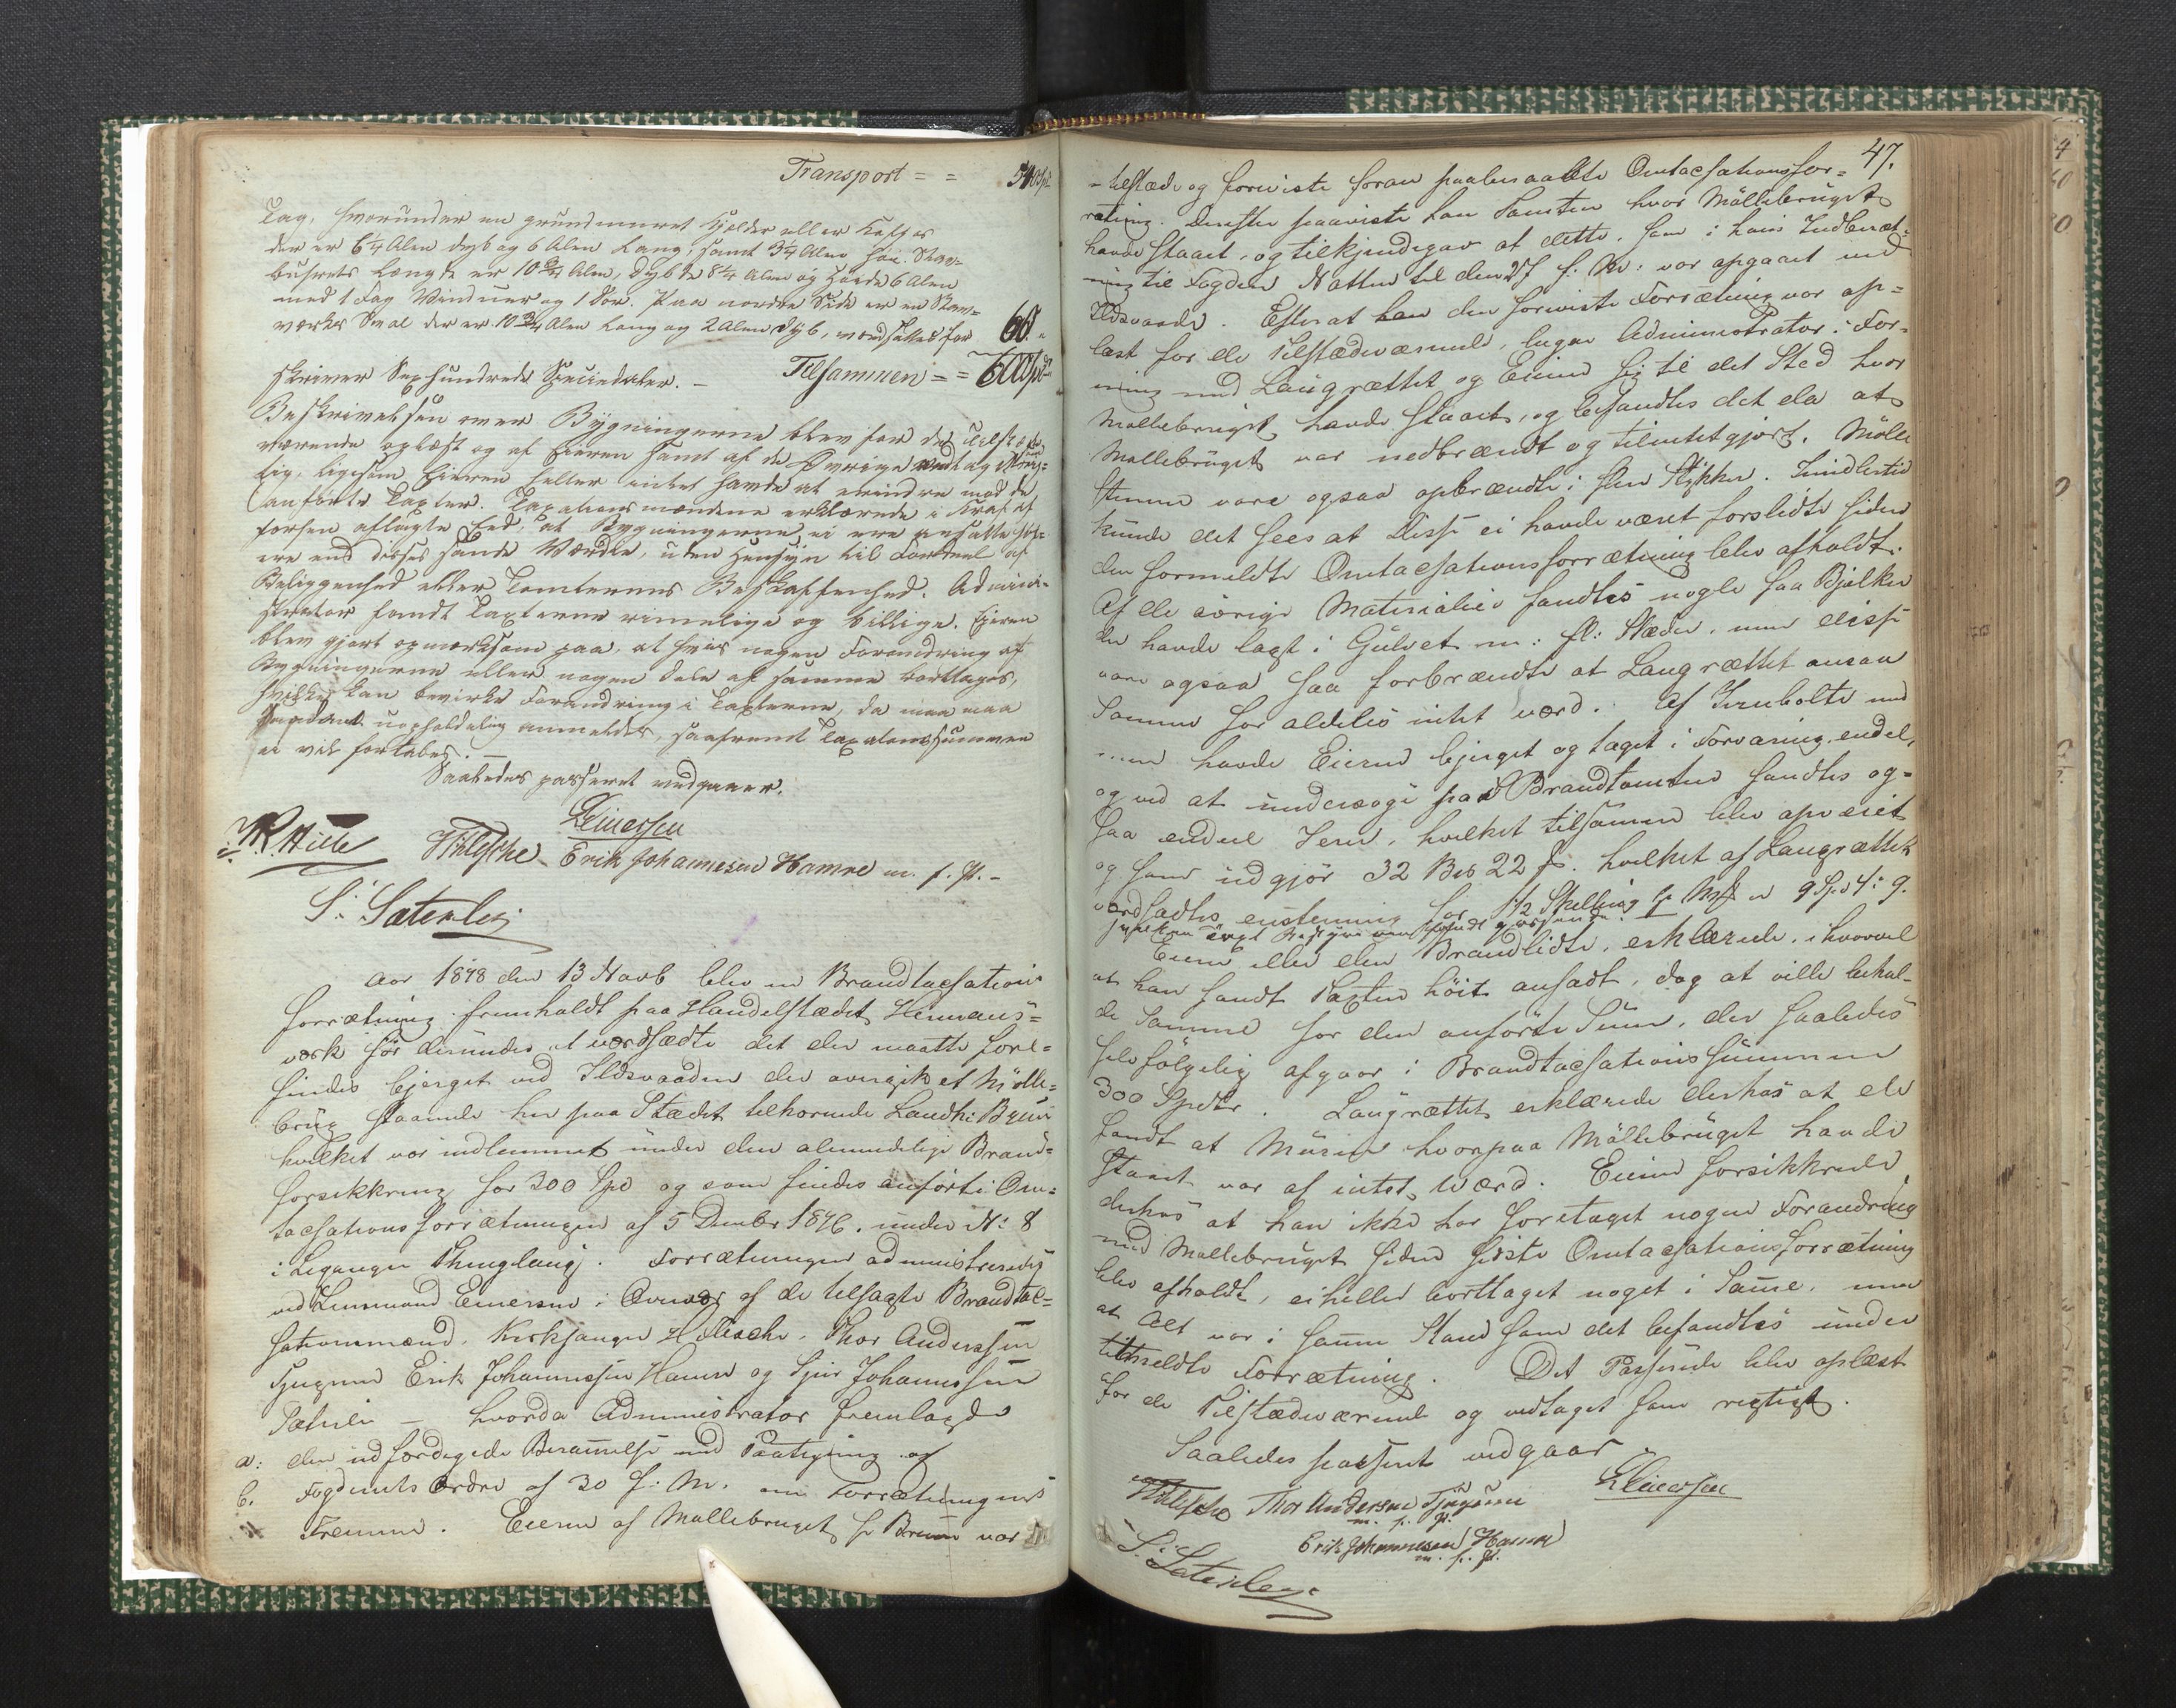 Transport = = 540 Spd
Tag, hvorunder en grundmuret Kjelder eller Kasse
der er 6 1/4 Alen dyb og 6 Alen lang, samt 3 1/4 Alen høi. Stav-
bursets Længde er 10 3/4 Alen, Dybde 8 1/4 Alen og Høide 6 Alen
med 1 Fag Vinduer og 1 Dør. Paa nordre Side er en Stav-
værks Sval der er 10 3/4 Alen lang og 2 Alen dyb, værdsattes for 60 "
skriver Sexhundrede Speciedaler. – Tilsammen = = 600 Spd
Beskrivelsen over Bygningerne blev for de Tilstede-
værende oplæst og af Eieren samt af de Øvrige vedtagen
lig, ligesom Eieren heller intet havde at erindre mod de
anførte Taxter. Taxationsmændene erklærede i Kraft af
forhen aflagte Eed, at Bygningerne ei ere ansatte høi-
ere end disses sande Værdie, uden Hensyn til Fordeel af
Beliggenhed eller Tomternes Beskaffenhed. Admini-
strator fandt Taxterne rimelige og billige. Eieren
blev gjort opmærksom paa, at hvis nogen Forandring af
Bygningerne eller nogen Dele af samme borttages,
hvilke kan bevirke Forandring i Taxterne, da maa
saadant uopholdelig anmeldes, saafremt Taxationssummen
ei vil fortabes. –
Saaledes passeret vedgaaer.
Einersen
Erik Johannesen Hamre m. f. P. –
S: Sæterlie
Aar 1848 den 13 Novb blev en Brandtacsations
forrætning fremholdt paa Handelstædet Hermans-
værk for derunder at værdsædte det der maatte fore-
findes bjerget ved Ildsvaaden der overgik et Mølle-
brug staaende her paa Stædet tilhørende Landh: Brun
hvilket var indlemmet under den alemindelige Brand-
forsikkring for 300 Spd og som findes anført i Om-
tacsations forrætningen af 5 Decmbr 1846. under N: 8
i Leganger Thinglaug. Forrætningen administreredes
ved Lensmand Einersen i Overvær af de tilsagte Brandtac-
sationsmænd. Kirksanger Thor Anderssen
Tjugum Erik Johannessen Hamre og Sjur Johannessen
Sæterlie – hvorda Administrator fremlagde
a: den udfærdigede Berammelse med Paategning og
b. Fogderiets Ordre af 30 f: M. om Forrætningens
Fremme. Eieren af Møllebruget Hr Brun var
47.
tilstæde og foreviste foran paaberaabte Omtacsationsfor-
rætning. Derefter paaviste han Tomten hvor Møllebruget
havde staaet, og tilkjendegav at dette, som i hans Indberet-
ning til Fogden Natten til den 27 f: M: var opgaaet ved
Ildsvaade. Efterat han den foreviste Forrætning var op-
læst for de Tilstædeværende, begav Administrator i For-
ening med Laugrættet og Eieren sig til det Sted hvor
Møllebruget havde staaet, og befandtes det da at
Møllebruget var nedbrændt og tilintetgjort. Mølle
stenene vare ogsaa opbrændte i flere Stykker. Imidlertid
kunde det sees at disse ei havde været forsledte siden
den formeldte Omtacsationsforrætning blev afholdt.
Af de øvrige Materialier fandtes nogle faa Bjelker
der havde lagt i Gulvet m: fl: Stæder, men disse
vare ogsaa saa forbrændte at Laugrættet ansaa
Samme for aldeles intet værd. Af Jernbolte med
havde Eieren bjerget og taget i Forvaring endel,
og ved at undersøge paa Brandtomten fandtes og-
saa endeel Jern, hvilket tilsammen blev afveiet
og som udgjør 32 Bm 22 #. hvilket af Laugrættet
værdsadtes for 1/2 Skelling pr M# = 9 Spd 4: 9.
Eieren eller den Brandlidte, erklærede, ihvorvel
at han fandt Taxten høit ansadt, dog at ville behol-
de Samme for den anførte Sum, der saaledes
selvfølgelig afgaar i Brandtacsations summen
300 Spdlr. Laugrættet erklærede derhos at de
fandt at Muren hvorpaa Møllebruget havde
staaet var af intet Værd. Eieren forsikkrede
derhos at han ikke har foretaget nogen Forandring
med Møllebruget siden sidste Omtacsationsforrætning
blev afholdt, eiheller borttaget noget i Samme, men
at Alt var i samme Stand som det befandtes under
titmeldte Forrætning. Det Passerede blev oplæst
for de Tilstædeværende og vedtaget som rigtigt.
Saaledes passeret vedgaar
Thor Andersen Tjugum Einersen
m. f. P.
Erik Johannesen Hamre
m. f. P.
S: Sæterlie